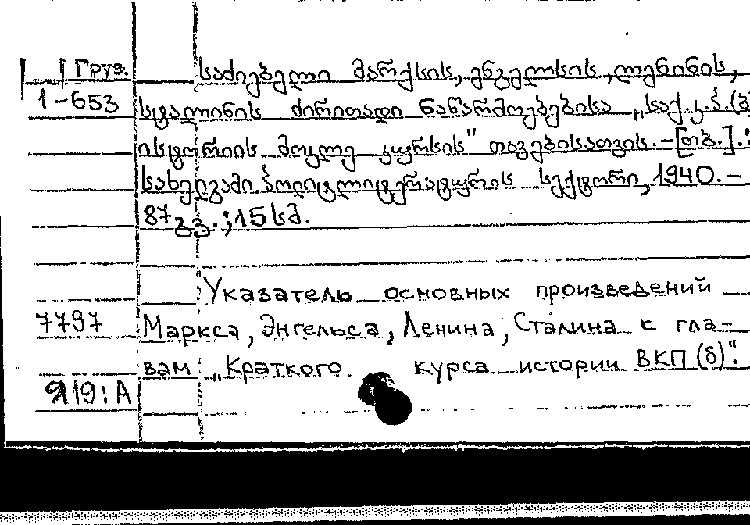 Груз. საძიებელი მარქსის, ენგელსის, ლენინის,
1-653 სტალინის ძირითადი ნაწარმოებებისა „საქ. კ.პ.(ბ)
ისტორიის მოკლე კურსის" თავებისათვის. – [თბ.].:
სახელგამი. პოლიტლიტერატურის სექტორი, 1940. –
87გვ.; 15 სმ.
Указатель основных произведений
7797 Маркса, Энгельса, Ленина, Сталина к гла-
вам „Краткого курса истории ВКП(б)".
Я19:А